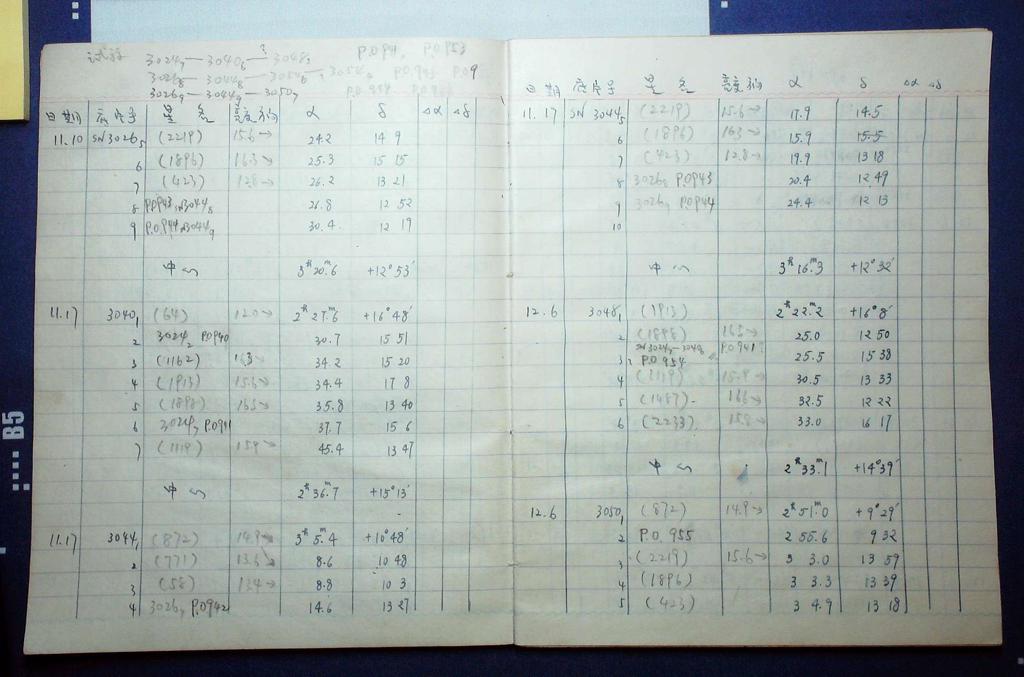 试验 3024₇—3040₆—3048₃ P.O941, P.O953
3026₈—3044₈—3054₆, 3054₄ P.O943 P.O9
3026₉—3044₉—3050₇ P.O954
日期 底片号 星名 α δ Δα Δδ
11.10 SN3026₅ (2219) 15.6→ 24.2 14 9
6 (1896) 16.3→ 25.3 15 15
7 (423) 12.8→ 26.2 13 21
8 P.O943, SN3044₈ 26.8 12 52
9 P.O.944 SN3044₉ 30.4 12 19
中心 3ʰ20.6ᵐ +12°53′
11.17 3040₁ (64) 12.0→ 2ʰ27.6ᵐ +16°48′
2 3024₂ P.O940 30.7 15 51
3 (1162) 16.3→ 34.2 15 20
4 (1913) 15.6→ 34.4 17 8
5 (1898) 16.5→ 35.8 13 40
6 3024₇ P.O941 37.7 15 6
7 (1119) 15.9→ 45.4 13 47
中心 2ʰ36.7ᵐ +15°13′
11.17 3044₁ (872) 14.9→ 3ʰ5.4ᵐ +10°48′
2 (771) 13.6→ 8.6 10 48
3 (58) 13.4→ 8.8 10 3
4 3026₇ P.O942 14.6 13 27
日期 底片号 星名 α δ Δα Δδ
11.17 SN 3044₅ (2219) 15.6→ 17.9 14.5
6 (1896) 16.3→ 15.9 15.5
7 (423) 12.8→ 19.9 13 18
8 3026₈ P.O943 20.4 12 49
9 3026₉ P.O944 24.4 12 13
10
中心 3ʰ16.3ᵐ +12°32′
12.6 3048₁ (1913) 2ʰ22.2ᵐ +16°8′
2 (1898) 16.5→ 25.0 12 50
SN3024₇—3048 P.O941?
3 P.O 954 25.5 15 38
4 (1119) 15.9→ 30.5 13 33
5 (1487) 16.6→ 32.5 12 22
6 (2233) 15.8→ 33.0 16 17
中心 2ʰ33.1ᵐ +14°39′
12.6 3050₁ (872) 14.9→ 2ʰ51.0ᵐ +9°29′
2 P.O. 955 2 55.6 9 32
3 (2219) 15.6→ 3 3.0 13 59
4 (1896) 3 3.3 13 39
5 (423) 3 4.9 13 18
B5